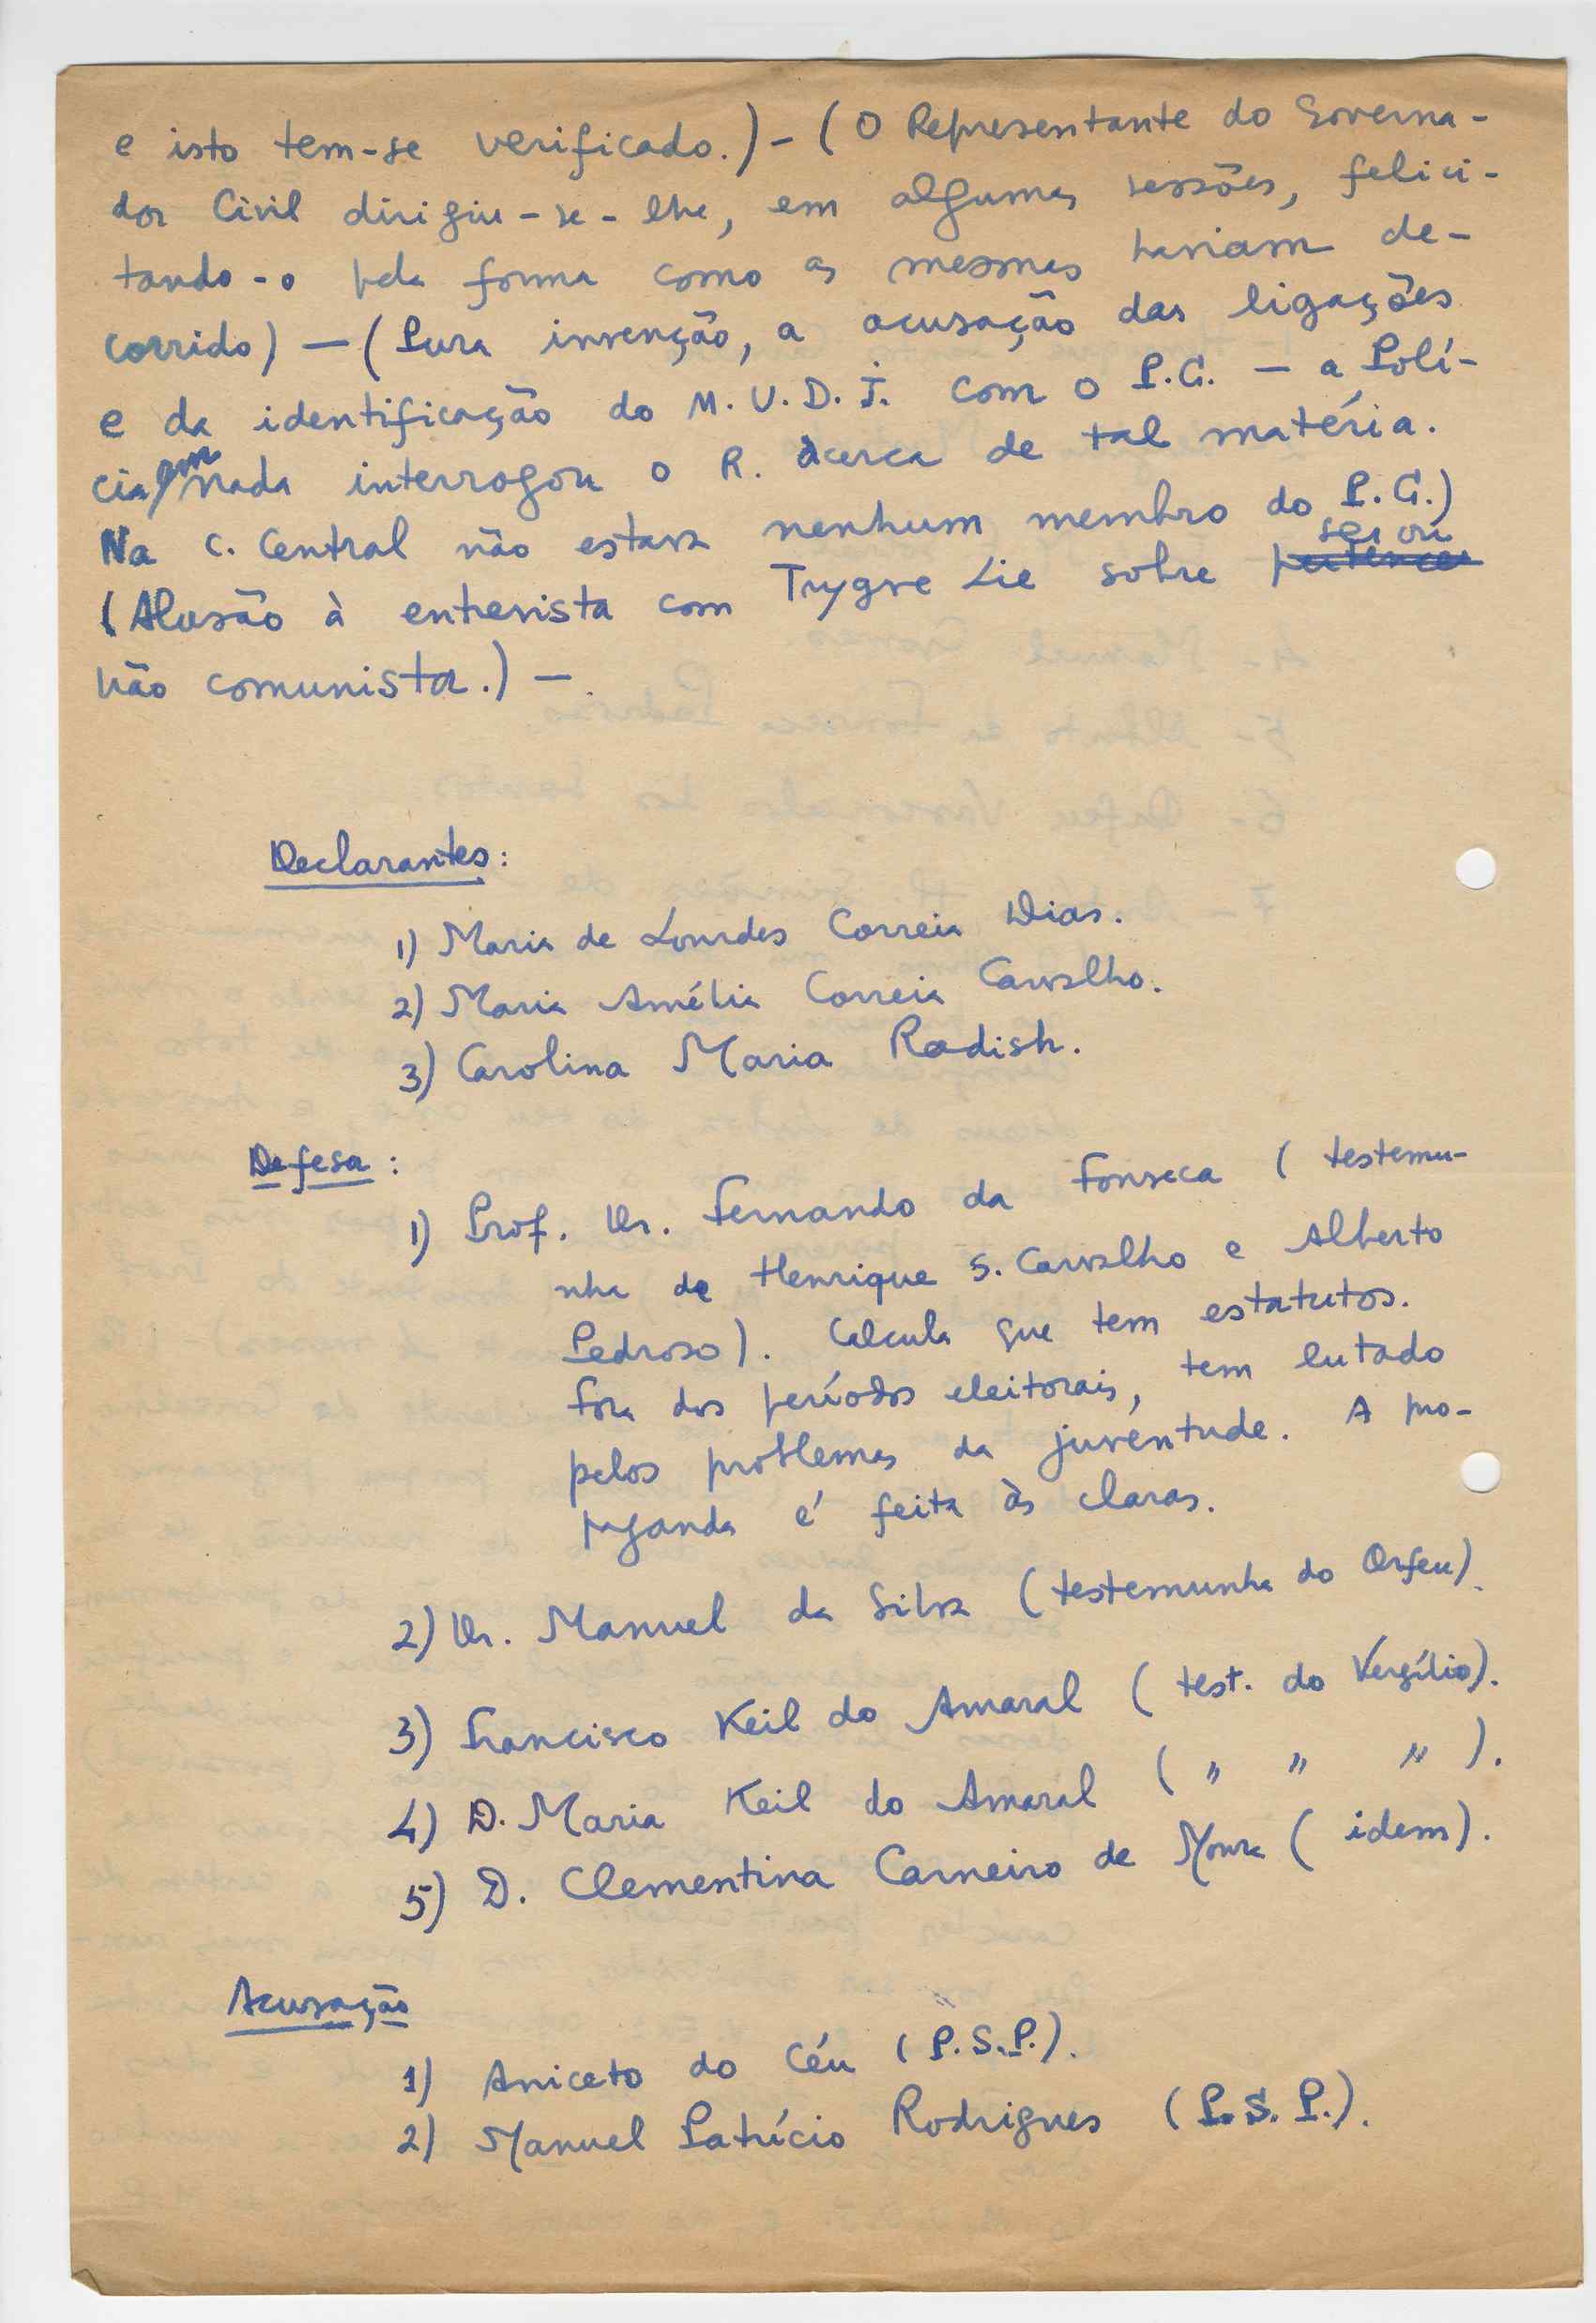 e isto tem-se verificado.) - (O Representante do Governa-
dor Civil dirigiu-se-lhe, em algumas sessões, felici-
tando-o pela forma como as mesmas haviam de-
corrido) — (Pura invenção, a acusação das ligações
e da identificação do M.U.D.J. com o P.C. — a Polí-
cia em nada interrogou o R. àcerca de tal matéria.
Na C. Central não estava nenhum membro do P.C.)
(Alusão à entrevista com Trygve Lie sobre ser ou
não comunista.) —
Declarantes:
1) Maria de Lourdes Correia Dias.
2) Maria Amélia Correia Carvalho.
3) Carolina Maria Radish.
Defesa:
1) Prof. Dr. Fernando da Fonseca (testemu-
nha de Henrique S. Carvalho e Alberto
Pedroso). Calcula que tem estatutos.
Fora dos períodos eleitorais, tem lutado
pelos problemas da juventude. A pro-
paganda é feita às claras.
2) Dr. Manuel da Silva (testemunha do Orfeu).
3) Francisco Keil do Amaral (test. do Vergílio).
4) D. Maria Keil do Amaral ( " " " ).
5) D. Clementina Carneiro de Moura (idem).
Acusação
1) Aniceto do Céu (P.S.P.).
2) Manuel Patrício Rodrigues (P.S.P.).